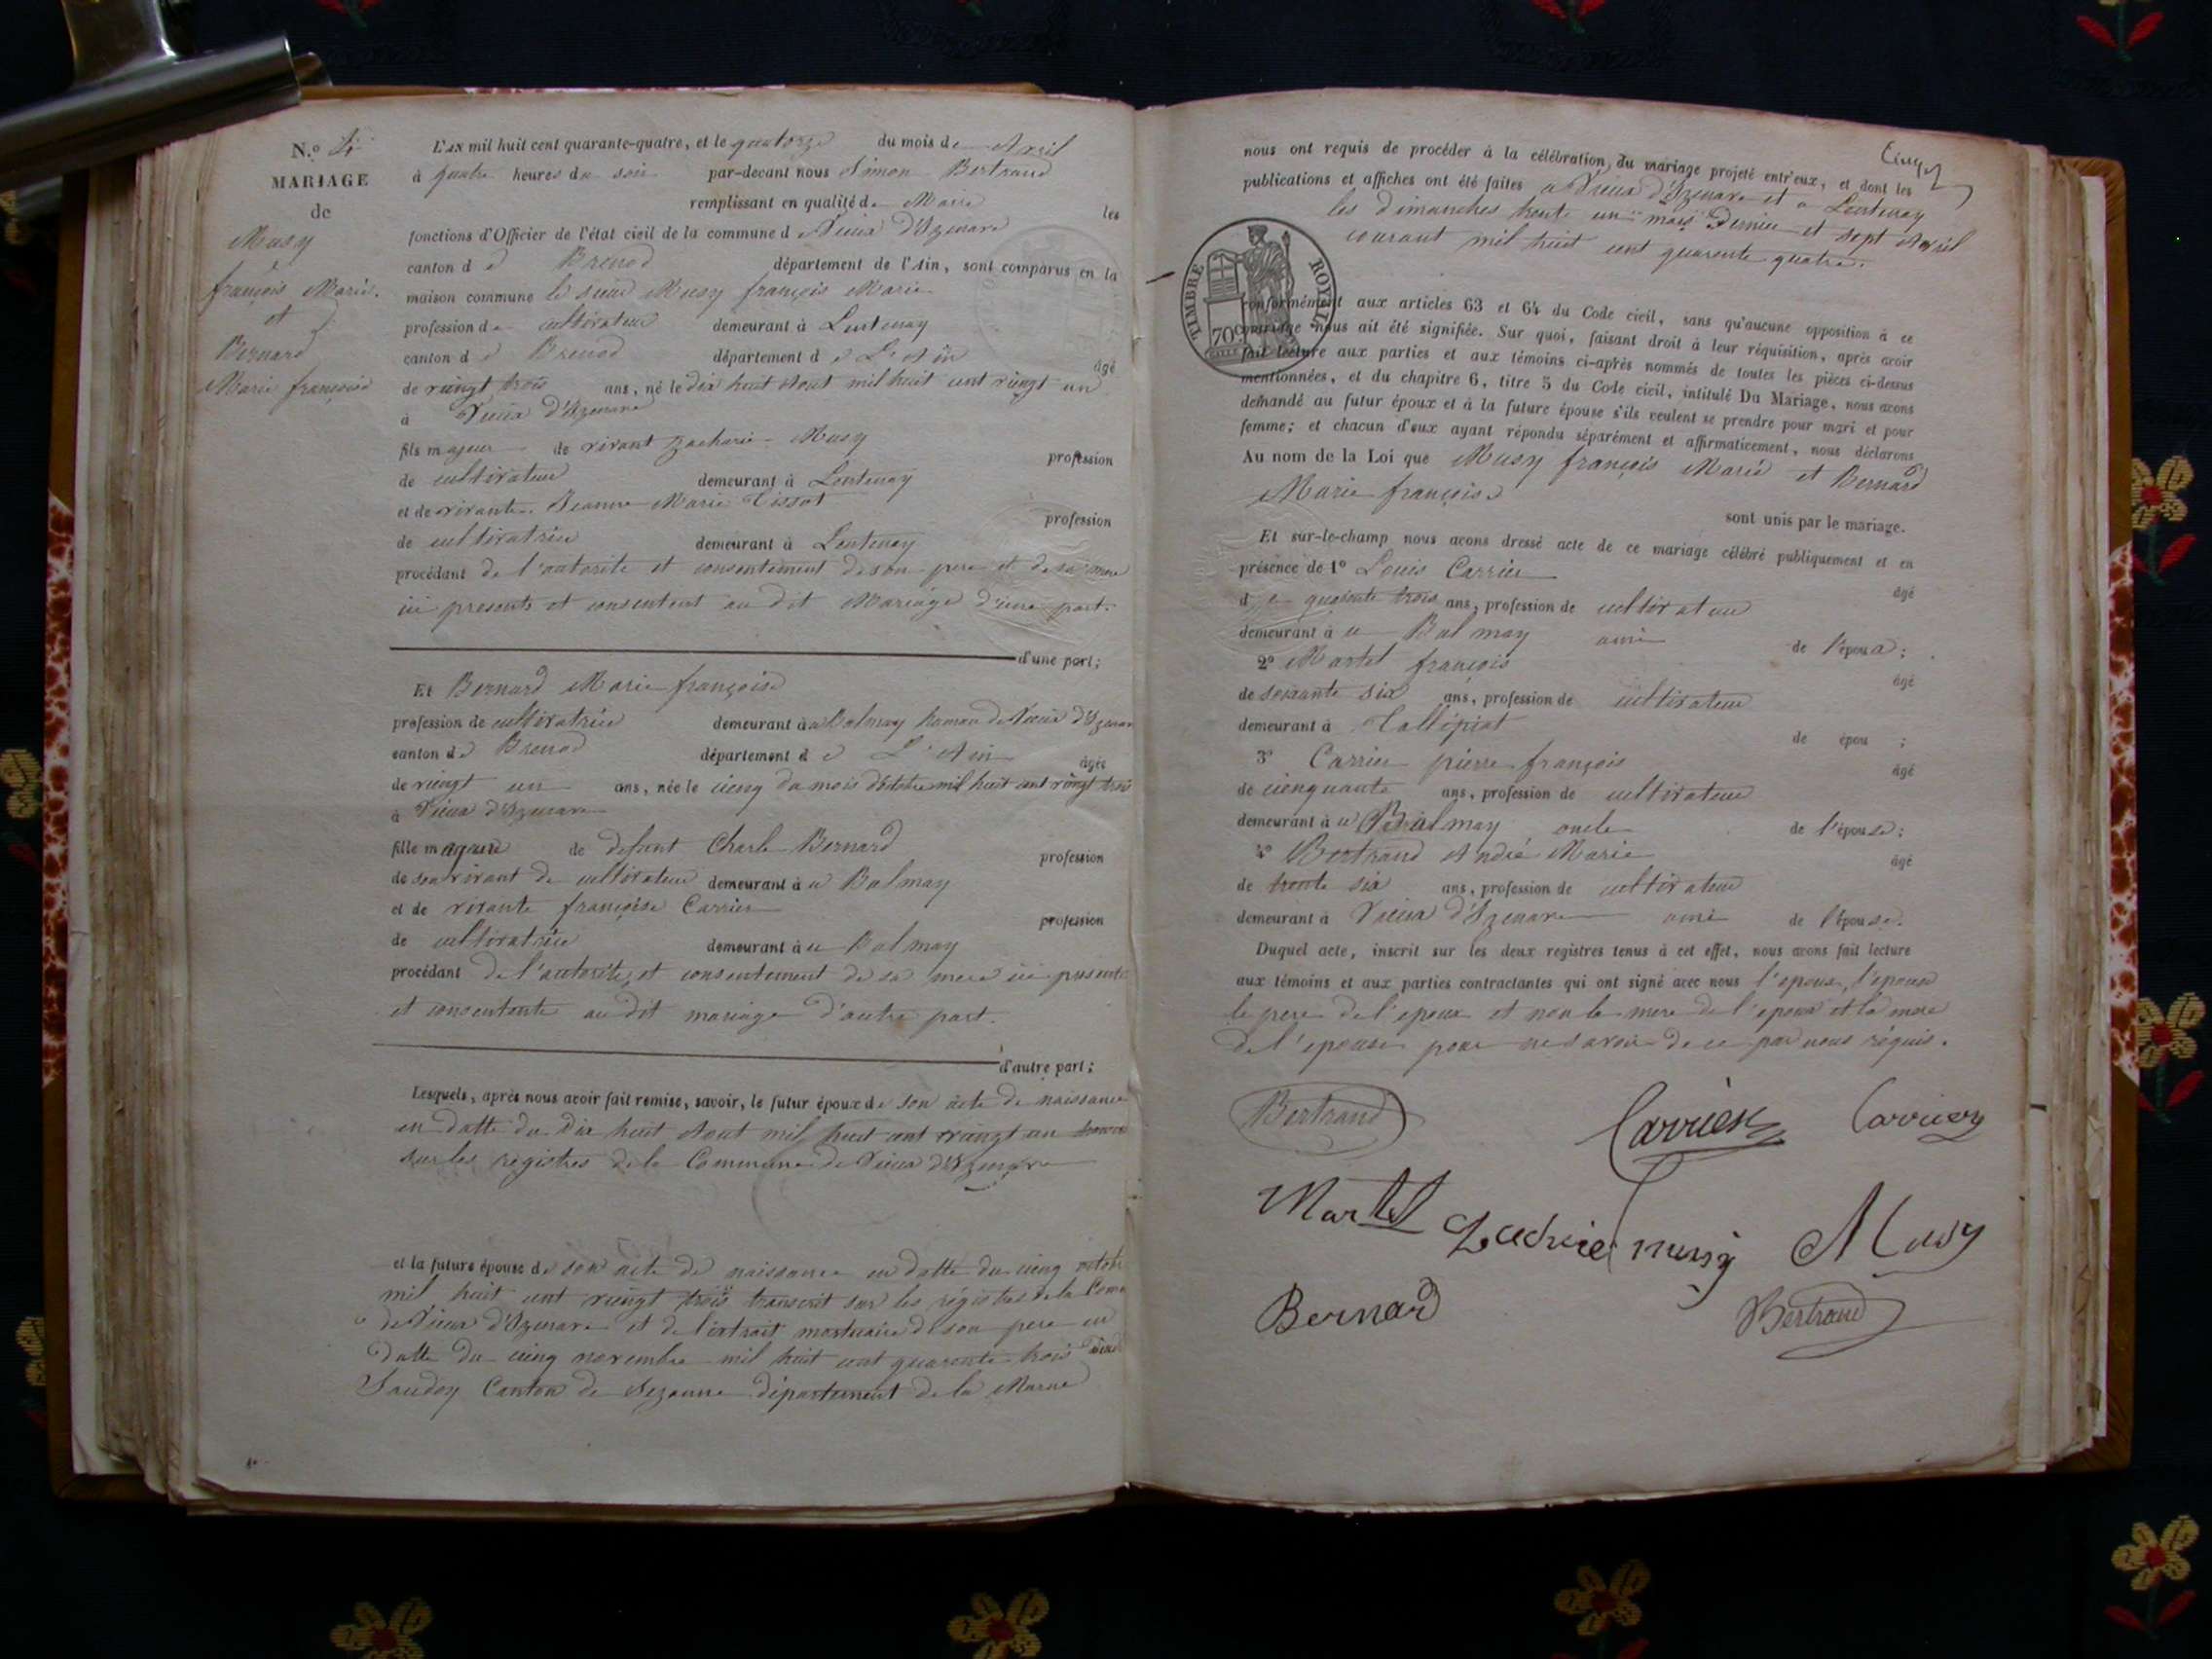 N.º 4
MARIAGE
de
Musy
françois Marie.
et
Bernard
Marie françoise
L'AN mil huit cent quarante-quatre, et le quatorze du mois de Avril
à quatre heures du soir par-devant nous Simon Bertrand
remplissant en qualité de Maire les
fonctions d'Officier de l'état civil de la commune d Vieux d'Izenave
canton d e Brenod département de l'Ain, sont comparus en la
maison commune le sieur Musy françois Marie
profession de cultivateur demeurant à Lentenay
canton d e Brenod département d e L'Ain âgé
de vingt trois ans, né le dix huit Aout mil huit cent vingt un
à Vieux d'Izenave
fils majeur de vivant Zacharie Musy profession
de cultivateur demeurant à Lentenay
et de vivante Jeanne Marie Tissot profession
de cultivatrice demeurant à Lentenay
procédant de l'autorite et consentement de son pere et de sa mere
ici presents et consentent au dit Mariage d'une part.
d'une part;
Et Bernard Marie françoise
profession de cultivatrice demeurant à u Balmay hamau de Vieux d'Izenave
canton de Brenod département d e L'Ain âgée
de vingt un ans, née le cinq du mois d'octobre mil huit cent vingt trois
à Vieux d'Izenave
fille majeure de defunt Charle Bernard profession
de son vivant de cultivateur demeurant à u Balmay
et de vivante françoise Carrier profession
de cultivatrice demeurant à u Balmay
procédant de l'autorite et consentement de sa mere ici presente
et consentente au dit mariage d'autre part.
d'autre part;
Lesquels, après nous avoir fait remise, savoir, le futur époux de son acte de naissance
en datte du Dix huit Aout mil huit cent vingt un
sur les registres de la Commune de Vieux d'Izenave
et la future épouse de son acte de naissance en datte du cinq octobre
mil huit cent vingt trois transcrit sur les régistres de la Com
de Vieux d'Izenave et de l'extrait mortuaire de son pere en
datte du cinq novembre mil huit cent quarante trois
Saudoy Canton de Sezanne département de la Marne
nous ont requis de procéder à la célébration du mariage projeté entr'eux, et dont les
publications et affiches ont été faites a Vieux d'Izenave et a Lentenay
les dimanches trente un mars dernier et sept Avril
courant mil huit cent quarante quatre.
TIMBRE ROYAL
70c
conformément aux articles 63 et 64 du Code civil, sans qu'aucune opposition à ce
mariage nous ait été signifiée. Sur quoi, faisant droit à leur réquisition, après avoir
fait lecture aux parties et aux témoins ci-après nommés de toutes les pièces ci-dessus
mentionnées, et du chapitre 6, titre 5 du Code civil, intitulé Du Mariage, nous avons
demandé au futur époux et à la future épouse s'ils veulent se prendre pour mari et pour
femme; et chacun d'eux ayant répondu séparément et affirmativement, nous déclarons
Au nom de la Loi que Musy françois Marie et Bernard
Marie françoise
sont unis par le mariage.
Et sur-le-champ nous avons dressé acte de ce mariage célébré publiquement et en
présence de 1º Louis Carrier
d e quarente trois ans, profession de cultivateur âgé
demeurant à u Balmay ami de l'époux;
2º Martel françois âgé
de soixante six ans, profession de cultivateur
demeurant à Tallipiat de épou ;
3º Carrier pierre françois âgé
de cinquante ans, profession de cultivateur
demeurant à u Balmay oncle de l'épouse;
4º Bertrand André Marie âgé
de trente six ans, profession de cultivateur
demeurant à Vieux d'Izenave ami de l'épouse.
Duquel acte, inscrit sur les deux registres tenus à cet effet, nous avons fait lecture
aux témoins et aux parties contractantes qui ont signé avec nous l'epoux, l'epouse
le pere de l'epoux et non la mere de l'epoux et la mere
de l'epouse pour ne savoir de ce par nous réquis.
Bertrand Carrier Carrier
Martel Zacharie musy Musy
Bernard Bertrand